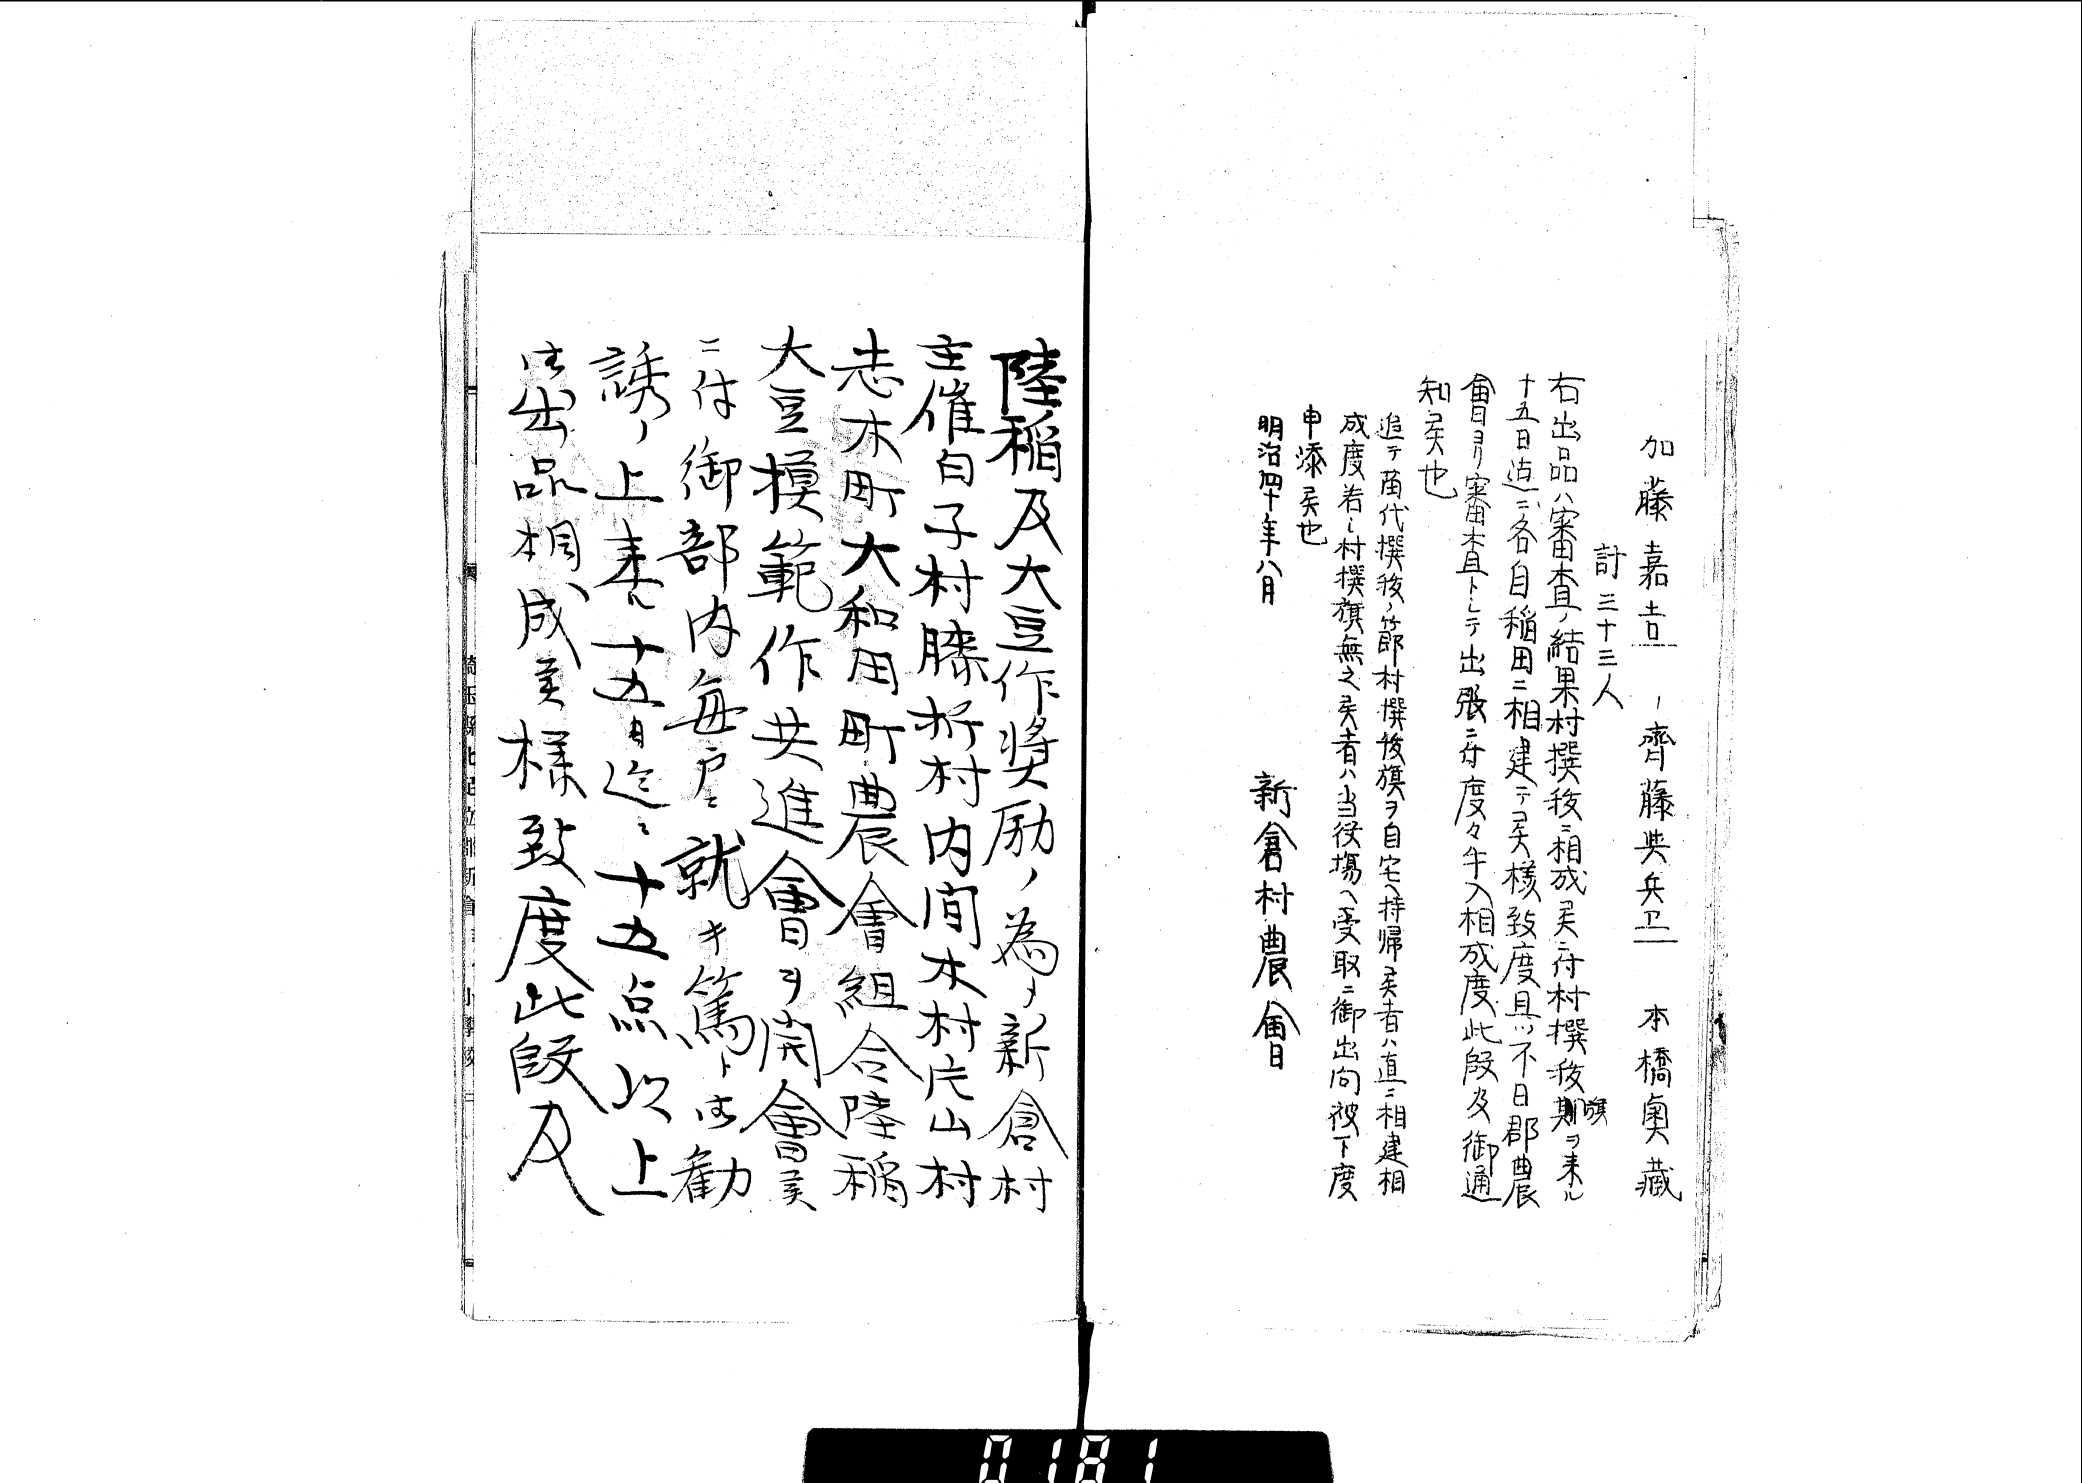 加藤嘉吉　〃齊藤興兵卫　本橋奥藏
計三十三人
右出品ハ審査ノ結果村撰抜ニ相成候ニ付村撰抜旗ヲ来ル
十五日迠ニ各自稲田ニ相建テ候様致度且ツ不日郡農
會ヨリ審査トシテ出張ニ付度々手入相成度此段及御通
知候也
追テ苗代撰抜ノ節村撰抜旗ヲ自宅ヘ持帰候者ハ直ニ相建相
成度若シ村撰旗無之候者ハ当役塲ヘ受取ニ御出向被下度
申添候也
明治四十年八月
新倉村農會
陸稲及大豆作奨励ノ為メ新倉村
主催白子村膝折村内间木村片山村
志木町大和田町農會組合陸稲
大豆模範作共進會ヲ開會候
ニ付御部内毎戸ニ就キ篤ト御勧
誘ノ上来ル十五日迠ニ十五点以上
御出品相成候様致度此段及
0181